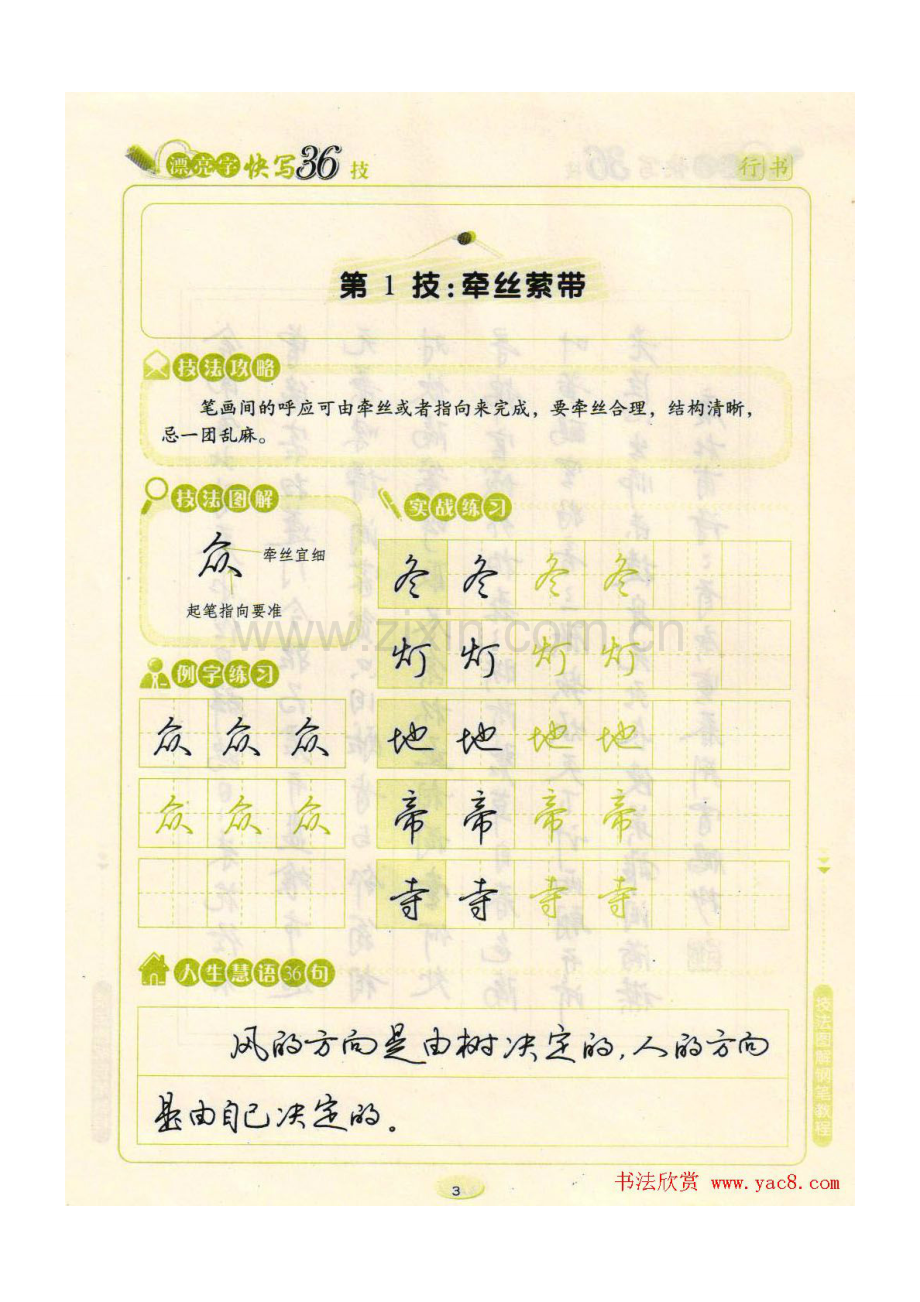 漂亮字快写36技
行书
第1技:牵丝萦带
技法攻略
笔画间的呼应可由牵丝或者指向来完成，要牵丝合理，结构清晰，
忌一团乱麻。
技法图解
众
牵丝宜细
起笔指向要准
例字练习
众 众 众
众 众 众
实战练习
冬 冬 冬 冬
灯 灯 灯 灯
地 地 地 地
帝 帝 帝 帝
寺 寺 寺 寺
www.zixin.com.cn
人生慧语36句
风的方向是由树决定的,人的方向
是由自己决定的。
技法图解钢笔教程
3
书法欣赏 www.yac8.com